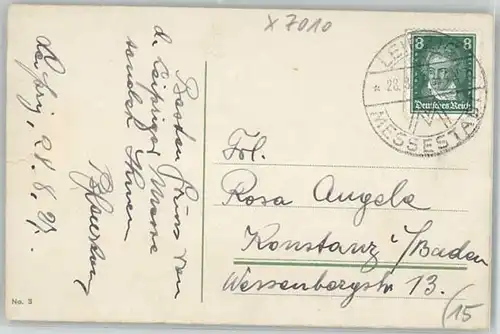 x 7010
8 8
Deutsches Reich
LEI
* 28.8
M
MESSESTA
Besten Gruss von
d. Leipziger Messe
sendet Ihnen
Leipzig, 28.8.27.
Frl.
Rosa Angele
Konstanz i/Baden
Wessenbergstr 13.
No. 3
15